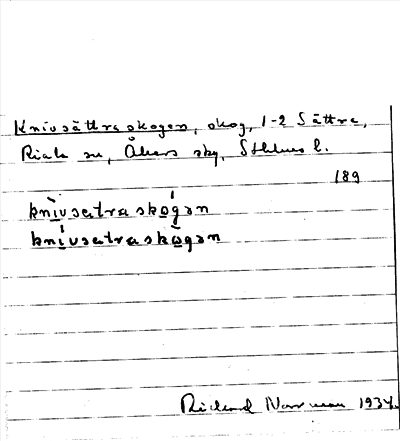 Knivsättraskogen, skog, 1-2 Sättra,
Riala sn, Åkers skg, Sthlms l.
189
knivsætraskogən
knivsætraskogən
Rickard Norrman 1934.